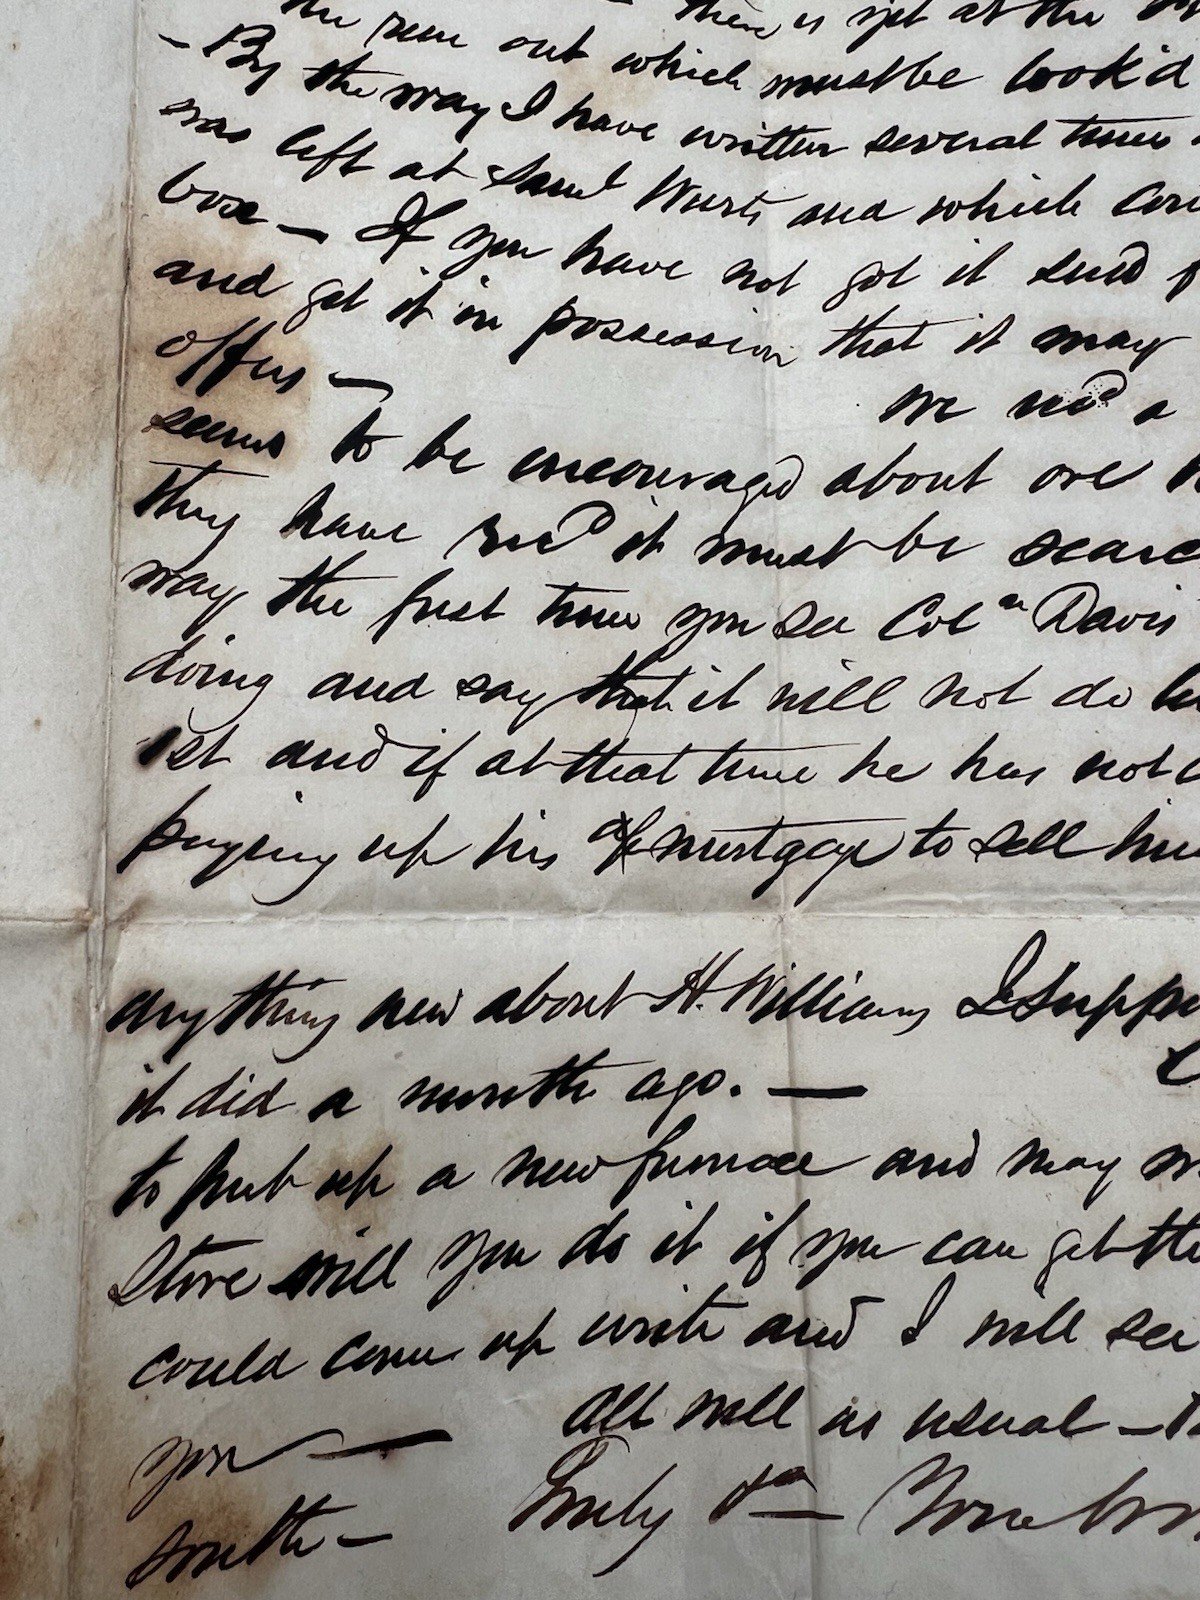 the rem out which must be look'd
there is yet at the
- By the way I have written several times
was left at Saml Wurts and which
box — If you have not got it send
and get it in possession that it may
offers —
we recd a
seems to be encouraged about ore
they have recd it must be
way the first time you see Coln Davis
doing and say that it will not do
1st and if at that time he has not
paying up his of mortgage to sell him
anything new about H. Williams I
it did a month ago. —
to put up a new furnace and may
Store will you do it if you can get the
could come up write and I will see
you —
All well as usual —
south —
Truly &c — Your